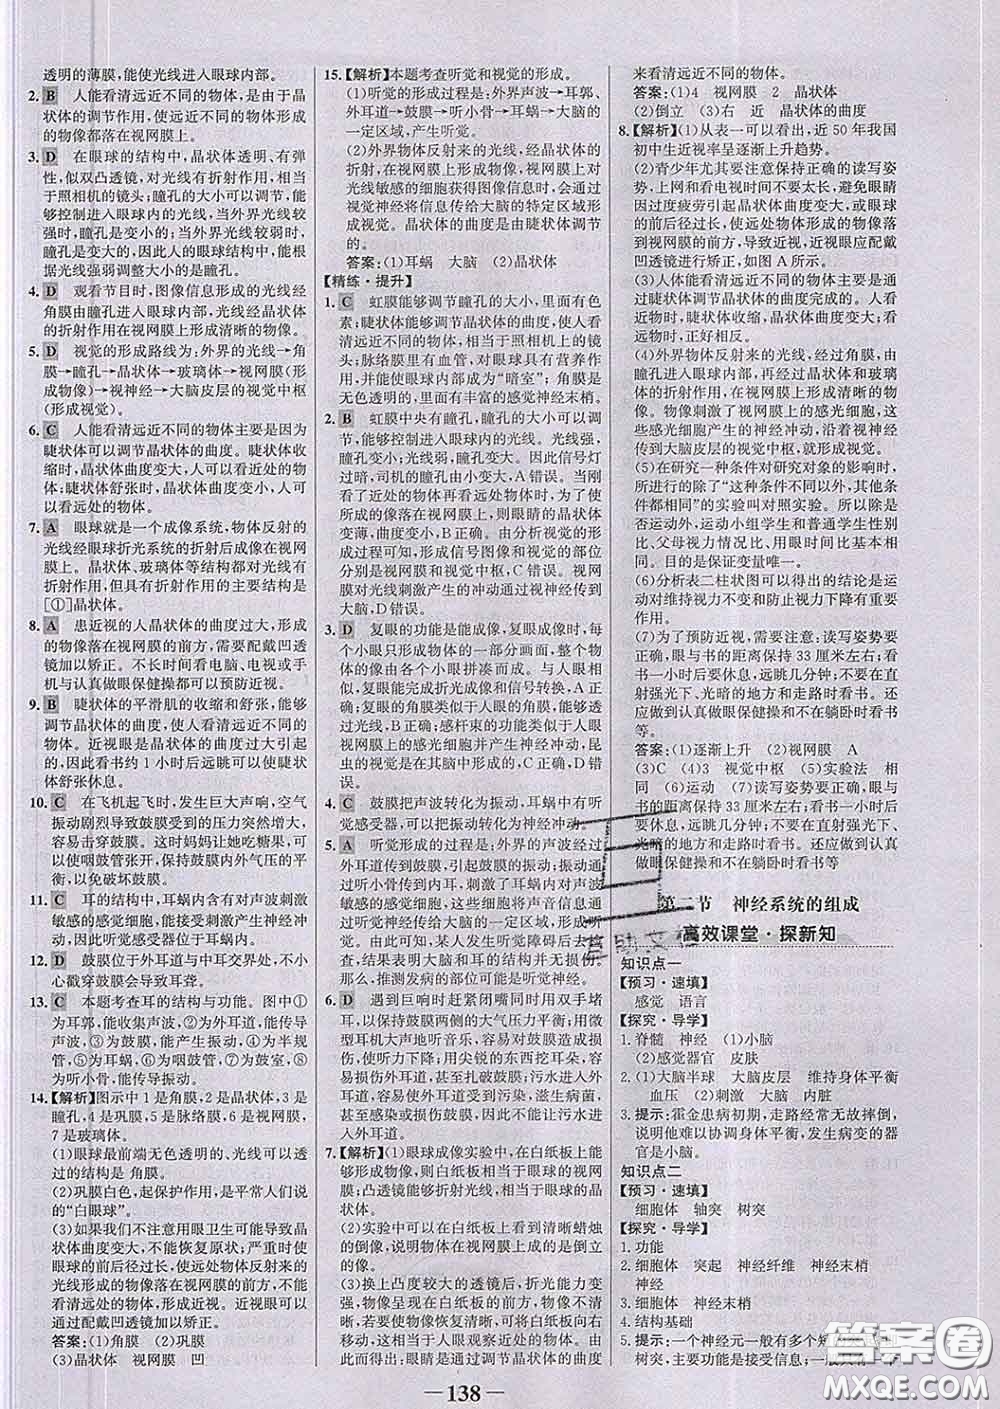 透明的薄膜,能使光线进入眼球内部。
2. B 人能看清远近不同的物体,是由于晶
状体的调节作用,使远近不同的物体形成
的物像都落在视网膜上。
3. D 在眼球的结构中,晶状体透明、有弹
性,似双凸透镜,对光线有折射作用,相当
于照相机的镜头;瞳孔可以调节,能
够控制进入眼球内的光线,当外界光线较
强时,瞳孔是变小的;当外界光线较弱时,
瞳孔是变大的,因此人的眼球结构中,能
根据光线强弱调整大小的是瞳孔。
4. D 观看节目时,图像信息形成的光线经
角膜由瞳孔进入眼球内部,光线经晶状体
的折射作用在视网膜上形成清晰的物像。
5. D 视觉的形成路线为:外界的光线→角
膜→瞳孔→晶状体→玻璃体→视网膜(形
成物像)→视神经→大脑皮层的视觉中枢
(形成视觉)。
6. C 人能看清远近不同的物体主要是因为
睫状体可以调节晶状体的曲度。睫状体
收缩时,晶状体曲度变大,人可以看近处的物体;
睫状体舒张时,晶状体曲度变小,人可
以看远处的物体。
7. A 眼球就是一个成像系统,物体反射的
光线经眼球折光系统的折射后成像在视网
膜上。晶状体、玻璃体等结构都对光线有
折射作用,但具有折射作用的主要结构是
[①]晶状体。
8. A 患近视的人晶状体的曲度过大,形成
的物像落在视网膜的前方,需要配戴凹透
镜加以矫正。不长时间看电脑、电视或手
机与认真做眼保健操都可以预防近视。
9. B 睫状体的平滑肌的收缩和舒张,能够
调节晶状体的曲度,使人看清远近不同的
物体。近视眼是晶状体的曲度过大引起
的,因此看书约1小时后远眺可以使睫状
体舒张休息。
10. C 在飞机起飞时,发生巨大声响,空气
振动剧烈导致鼓膜受到的压力突然增大,
容易击穿鼓膜。这时妈妈让她吃糖果,可
以使咽鼓管张开,保持鼓膜内外气压的平
衡,以免破坏鼓膜。
11. C 耳的结构中,耳蜗内含有对声波刺激
敏感的感觉细胞,能接受刺激产生神经冲
动,因此听觉感受器位于耳蜗内。
12. D 鼓膜位于外耳道与中耳交界处,不小
心戳穿鼓膜会导致耳聋。
13. C 本题考查耳的结构与功能。图中①
为耳郭,能收集声波,②为外耳道,能传导
声波,③为鼓膜,能产生振动。④为半规
管,⑤为耳蜗,⑥为咽鼓管,⑦为鼓室,⑧
为听小骨,能传导振动。
14.【解析】图示中1是角膜,2是晶状体,3是
瞳孔,4是巩膜,5是脉络膜,6是视网膜,
7是玻璃体。
(1)眼球最前端无色透明的、光线可以透
过的结构是 角膜。
(2)巩膜白色,起保护作用,是平常人们说
的“白眼球”。
(3)如果我们不注意用眼卫生可能导致晶
状体曲度变大,不能恢复原状;严重时使
眼球的前后径过长,来自远处物体反射来
的光线形成的物像落在视网膜前方,不能
看清远处的物体,形成近视。近视可以通
过配戴凹透镜加以矫正。
答案:(1)角膜 (2)巩膜
(3)晶状体 视网膜 凹
15.【解析】本题考查听觉和视觉的形成。
(1)听觉的形成过程是:外界声波→耳郭、
外耳道→鼓膜→听小骨→耳蜗→大脑的
一定区域,产生听觉。
(2)外界物体反射来的光线,经晶状体的
折射,在视网膜上形成物像,视网膜上对
光线敏感的细胞获得图像信息时,会通过
视觉神经将信息传给大脑的特定区域形
成视觉。晶状体的曲度是由睫状体调节
的。
答案:(1)耳蜗 大脑 (2)晶状体
【精练·提升】
1. C 虹膜能够调节瞳孔的大小,里面有色
素;睫状体能够调节晶状体的曲度,使人看清
远近不同的物体,相当于照相机上的镜
头;脉络膜里有血管,对眼球具有营养作
用,并能使眼球内部成为“暗室”;角膜是
无色透明的,里面有丰富的感觉神经末梢。
2. B 虹膜中央有瞳孔,瞳孔的大小可以调
节,能够控制进入眼球内的光线。光线强,
瞳孔变小;光线弱,瞳孔变大。因此信号灯
过暗,司机的瞳孔由小变大,A错误。当刚
看了近处的物体再看远处物体时,为了使
所成的像落在视网膜上,眼球的晶状体的
凸度应变小,B正确。由分析视觉的形成
可知,形成信号图像和视觉的部位
分别是视网膜和视觉中枢,C错误。视网
膜对光线刺激产生的冲动通过视神经传到
大脑,D错误。
3. D 复眼的功能是能成像,复眼成像时,每
个小眼只形成物体的一部分画面,整个物体
的像由各个小眼拼凑而成。与人眼相
似,复眼能完成折光成像和信息转换,A正
确;复眼的角膜类似人眼的角膜,能够透过
光线,B正确;感杆束的功能类似于人眼
视网膜上的感光细胞并产生神经冲动,昆
虫的视觉是在其大脑中形成,C正确,D错
误。
4. C 鼓膜把声波转化为振动,耳蜗中有听
觉感受器,可以把振动转化为神经冲动。
5. A 听觉形成的过程是:外界的声波经过
外耳道传到鼓膜,引起鼓膜的振动;振动通
过听小骨传到内耳,刺激了耳蜗内对声波
敏感的感觉细胞,这些细胞就将声音信息
通过听觉神经传给大脑的一定区域,人就
产生了听觉。
因此可知,某人发生听觉障碍后去医
院检查,结果表明鼓膜、听小骨、耳蜗及
听觉中枢都正常,与耳的病变和损伤无关
系,推测发病的部位可能是听觉神经。
6. D 遇到巨响时赶紧闭嘴同时用双手堵
耳,以保持鼓膜两侧的大气压力平衡;用微
型耳机大声地听音乐,容易对鼓膜造成损
伤,影响听力;用尖锐的东西挖耳朵,容易
损伤外耳道,甚至扎破鼓膜;污水进入外耳
道,易使外耳道受到污染,滋生病菌,
甚至感染或损伤鼓膜,不能让污水进入
外耳道。
7.【解析】(1)眼球成像实验中,在白纸板上
看到清晰的物像,白纸板相当于眼球的视网
膜;凸透镜能够折射光线,相当于眼球的晶
状体。
(2)实验中可以在白纸板上看到清晰蜡烛
的倒像,说明物体在视网膜上的成像是倒立
的像。
(3)换上凸度较大的透镜后,折光能力变
强,使物像落在白纸板的前方,物像不清
晰。若要使物像变清晰,白纸板应该向右
移动,这相当于人眼观察近处的物体。由
此得出:眼睛是通过调节晶状体的曲度
来看清远近不同的物体。
答案:(1)4 视网膜 2 晶状体
(2)倒立 (3)右 近 晶状体的曲度
8.【解析】(1)从表一可以看出,近50年我国
初中生近视率呈逐渐上升趋势。
(2)青少年尤其要注意保持正确的读写姿
势,上网和看电视时间不要太长,避免眼睛
因过度疲劳引起晶状体曲度变大,或眼球
的前后径过长,使远处物体形成的物像落
到视网膜的前方,导致近视,近视应配戴
凹透镜进行矫正,如图A所示。
(3)人体能看清远近不同的物体主要是通过
睫状体调节晶状体的曲度完成的。人看
近物时,睫状体收缩,晶状体曲度变大;看
远物时,正好相反。
(4)外界物体反射来的光线,经过角膜、房
水,由瞳孔进入眼球内部,再经过晶状体和玻璃
体的折射作用,在视网膜上形成清晰的物
像。物像刺激了视网膜上的感光细胞,这
些感光细胞产生的神经冲动,沿着视神经
传到大脑皮层的视觉中枢,形成视觉。
(5)在研究一种条件对研究对象的影响时,
所进行的除了“这种条件不同外,其他条
件都相同”的实验叫对照实验。所以除了
是否运动外,运动小组学生和普通学生性别
比、父母视力情况比、用眼时间比基本相
同。目的是保证变量唯一。
(6)分析表二柱状图可以得出的结论是运
动对维持视力不变和防止视力下降有重要
作用。
(7)为了预防近视,要注意:读写姿势要正
确,眼与书的距离保持33厘米左右;看书
1小时后要休息,远眺几分钟;不要在
直射强光下、光暗的地方和走路时看书。还
应做到认真做眼保健操和不在躺卧时看书
等。
答案:(1)逐渐上升 (2)视网膜 A
(3)C (4)3 视觉中枢 (5)实验法 相
同 (6)运动 (7)读写姿势要正确,眼与
书的距离要保持33厘米左右,看书1小时后
要休息,远眺几分钟;不要在直射强光下、
光暗的地方和走路时看书等;还应做到认真
做眼保健操和不在躺卧时看书等
第二节 神经系统的组成
高效课堂·探新知
知识点一
【预习·速填】
感觉 语言
【探究·导学】
1. 脊髓 神经 (1)小脑
(2)感觉器官 皮肤
2. (1)大脑半球 大脑皮层 维持身体平衡
血压 (2)刺激 大脑 内脏
3. 提示:霍金患病初期,走路经常无故摔倒,
说明他难以协调身体平衡,发生病变的器
官是小脑。
知识点二
【预习·速填】
细胞体 轴突 树突
【探究·导学】
1. 功能
2. 细胞体 突起 神经纤维 神经末梢
神经
3. 细胞体 神经末梢
4. 结构基础
5. 提示:一个神经元一般有多个
树突,主要功能是接受信息;一般只有一条
— 138 —
答案圈
MXQE.COM